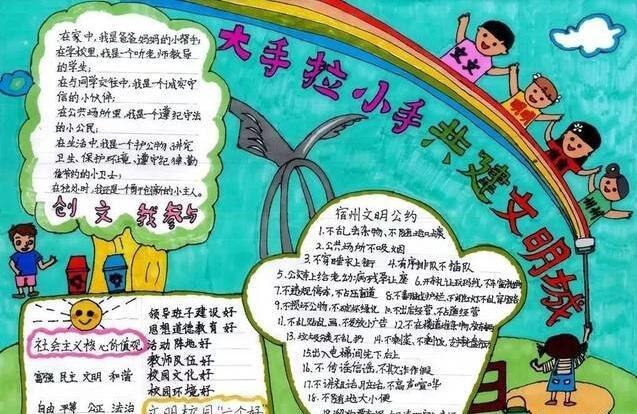 大手拉小手共建文明城
文文
明明
在家中,我是爸爸妈妈的小帮手;
在学校里,我是一个听老师教导
的学生;
在与同学交往中,我是一个诚实守
信的小伙伴;
在公共场所里,我是一个遵纪守法
的小公民;
在生活中,我是一个护公物,讲究
卫生,保护环境,遵守纪律,勤
俭节约的小卫士;
在独处时,我还是一个勇于创新的小主人。
创文我参与
宿州文明公约
1.不乱丢杂物、不随地吐痰
2.公共场所不吸烟
3.不穿睡衣上街
4.有序排队不插队
5.公交车上给老幼病残孕让座
7.不违规停车,不占压盲道
9.不损坏公物,不破坏绿化
10.不出店经营,不占道经营
11.不乱贴乱画,不发放小广告
12.不在楼道堆杂物
15.出入电梯间先下后上
16.不传谣信谣,
18.不随地大小便
社会主义核心价值观
富强 民主 文明 和谐
自由 平等 公正 法治
领导班子建设好
思想道德教育好
活动阵地好
教师队伍好
校园文化好
校园环境好
文明校园"六个好"